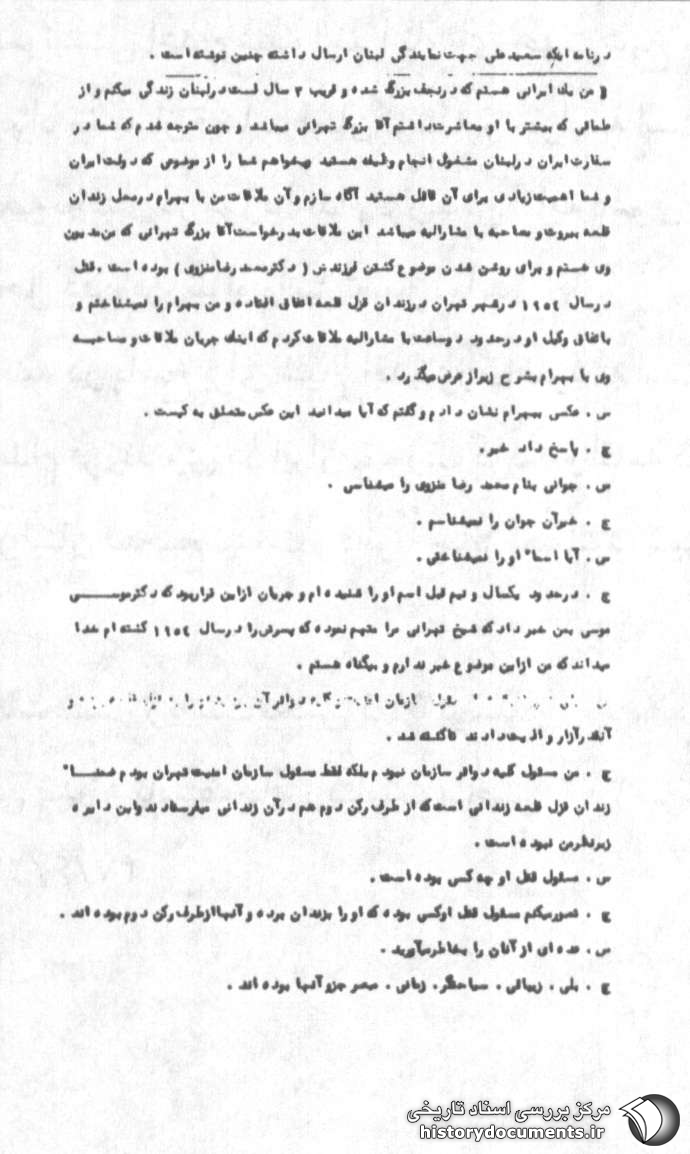 در نامه ایکه سعید علی جهت نمایندگی لبنان ارسال داشته چنین نوشته است .
" من یک ایرانی هستم که در نجف بزرگ شده و قریب ۳ سال است در لبنان زندگی میکنم و از
علمائی که بیشتر با او معاشرت داشتم آقا بزرگ تهرانی میباشد و چون متوجه شدم که شما در
سفارت ایران در لبنان مشغول انجام وظیفه هستید میخواهم شما را از موضوعی که دولت ایران
و شما اهمیت زیادی برای آن قائل هستید آگاه سازم و آن ملاقات من با بهرام در محل زندان
قلعه بیروت و مصاحبه با مشارالیه میباشد این ملاقات بدرخواست آقا بزرگ تهرانی که من مدیون
وی هستم و برای روشن شدن موضوع کشتن فرزندش ( دکتر محمد رضا منزوی ) بوده است . قتل
در سال ۱۹۵۴ در شهر تهران در زندان قزل قلعه اتفاق افتاده و من بهرام را نمیشناختم و
باتفاق وکیل او در حدود دو ساعت با مشارالیه ملاقات کردم که اینک جریان ملاقات و مصاحبه
وی با بهرام بشرح زیر از عرض میگذرد .
س . عکسی ببهرام نشان دادم و گفتم که آیا میدانید این عکس متعلق به کیست .
ج . پاسخ داد خیر .
س . جوانی بنام محمد رضا منزوی را میشناسی .
ج . خیر آن جوان را نمیشناسم .
س . آیا اسماً او را نمیشناختی .
ج . در حدود یکسال و نیم قبل اسم او را شنیده ام و جریان از این قرار بود که دکتر موسی
موسی بمن خبر داد که شیخ تهرانی مرا متهم نموده که پسرش را در سال ۱۹۵۴ کشته ام خدا
میداند که من از این موضوع خبر ندارم و بیگناه هستم .
س . سازمان امنیت و کلیه دوائر آن و
آنقدر آزار و اذیت دادند تا کشته شد .
ج . من مسئول کلیه دوائر سازمان نبودم بلکه فقط مسئول سازمان امنیت تهران بودم ضمناً
زندان قزل قلعه زندانی است که از طرف رکن دوم هم در آن زندانی میفرستادند و این دایره
زیر نظر من نبوده است .
س . مسئول قتل او چه کسی بوده است .
ج . تصور میکنم مسئول قتل او کسی بوده که او را بزندان برده و آنها از طرف رکن دوم بوده اند .
س . عده ای از آنان را بخاطر میآورید .
ج . بلی . زیبائی . سیاحتگر . زمانی . مبصر جزو آنها بوده اند .
مرکز بررسی اسناد تاریخی
historydocuments.ir